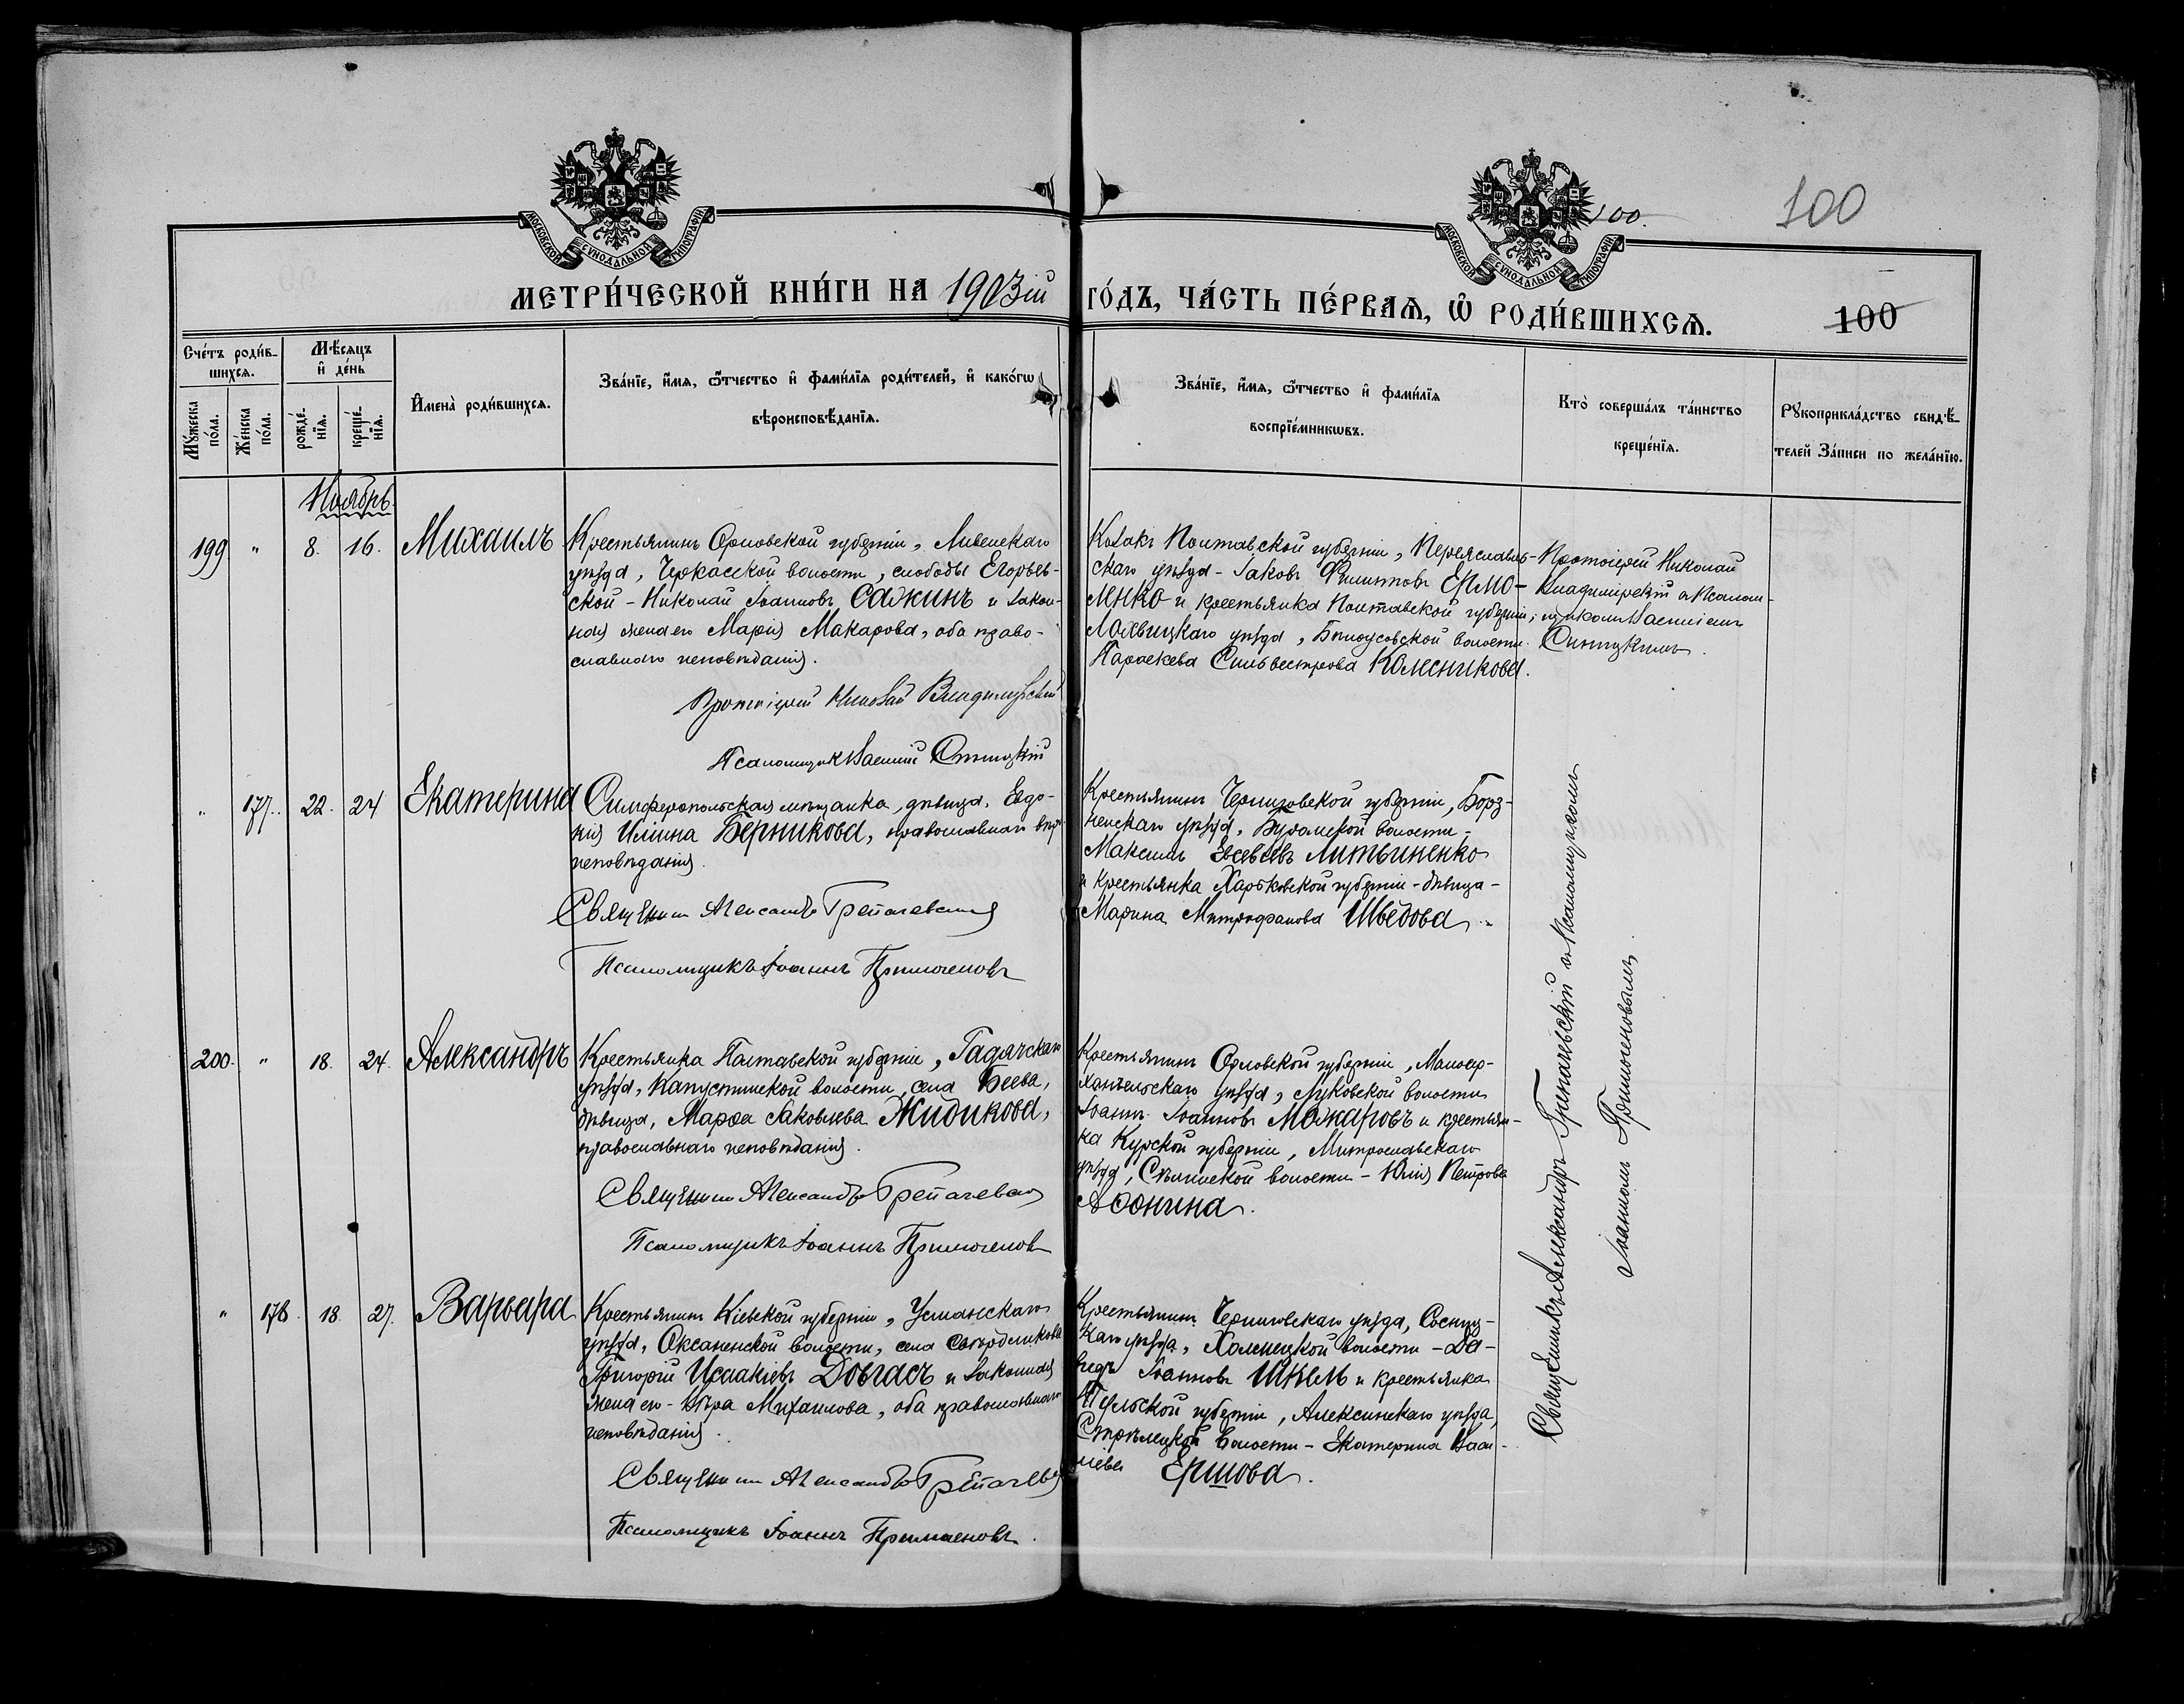 100.
100
МОСКОВСКОЙ СѴНОДАЛЬНОЙ ТИПОГРАФІИ
МОСКОВСКОЙ СѴНОДАЛЬНОЙ ТИПОГРАФІИ
МЕТРИ́ЧЕСКОЙ КНИ́ГИ НА 1903ій
ГО́ДЪ, ЧА́СТЬ ПЕ́РВАѦ, Ѽ РОДИ́ВШИХСѦ.
100
Сче́тъ роди́в-
шихсѧ.
Мѣ́сяцъ
и҆ де́нь
Мꙋ́жеска
по́ла.
Же́нска
по́ла.
рожде́-
нїѧ.
креще́-
нїѧ.
И҆мена̀ роди́вшихсѧ.
Зва́нїе, и҆́мѧ, ѻ҆́тчество и҆ фами́лїѧ роди́телей, и҆ како́гѡ
вѣроисповѣ́данїѧ.
Зва́нїе, и҆́мѧ, ѻ҆́тчество и҆ фами́лїѧ
воспрїе́мникѡвъ.
Кто̀ соверша́лъ та́инство
креще́нїѧ.
Рꙋкоприкла́дство свидѣ́-
телей За́писи по жела́нїю.
Ноябрь.
199 " 8. 16. Михаилъ
Крестьянинъ Орловской губерніи, Ливенскаго
уѣзда, Черкасской волости, слободы Егорьев-
ской - Николай Іоанновъ Сажкинъ и закон-
ная жена его Марія Макарова, оба право-
славнаго исповѣданія.
Протоіерей Николай Владимірскій
Псаломщикъ Василій Синицкій
Козакъ Полтавской губерніи, Переяслав-
скаго уѣзда - Іаковъ Филиповъ Ермо-
ленко и крестьянка Полтавской губерніи,
Лохвицкаго уѣзда, Бѣлоусовской волости
Параскева Сильвестрова Колесникова.
Протоіерей Николай
Владимірскій съ псалом-
щикомъ Василіемъ
Синицкимъ.
" 177. 22. 24 Екатерина
Симферопольская мѣщанка, дѣвица, Евдо-
кія Иліина Берникова, православнаго вѣро-
исповѣданія.
Священникъ Александръ Трепачевскій
Псаломщикъ Іоаннъ Примоченовъ
Крестьянинъ Черниговской губерніи, Борз-
ненскаго уѣзда, волости -
Максимъ Евсевіевъ Литвиненко
и крестьянка Харьковской губерніи - дѣвица -
Марина Митрофанова Шведова.
200. " 18. 24. Александръ
Крестьянка Полтавской губерніи, Гадячскаго
уѣзда, Капустинской волости, села Беева,
дѣвица, Марѳа Іаковлева Жидикова,
православнаго исповѣданія.
Священникъ Александръ Трепачевскій
Псаломщикъ Іоаннъ Примоченовъ
Крестьянинъ Орловской губерніи, Малоар-
хангельскаго уѣзда, Луковской волости
Іоаннъ Іоанновъ Мажаровъ и крестьян-
ка Курской губерніи,
уѣзда, волости - Юлія Петрова
Аѳонина.
" 178. 18. 27. Варвара
Крестьянинъ Кіевской губерніи, Уманскаго
уѣзда, Оксаненской волости, села Свердликова
Григорій Исаакіевъ Довгасъ и законная
жена его - Вѣра Михаилова, оба православнаго
исповѣданія.
Священникъ Александръ Трепачевскій
Псаломщикъ Іоаннъ Примоченовъ.
Крестьянинъ Черниговскаго уѣзда, Сосниц-
каго уѣзда, Холмецкой волости - Да-
видъ Іоанновъ и крестьянка
Тульской губерніи, Алексинскаго уѣзда,
Стрѣлецкой волости - Екатерина Васи-
лiева Ершова.
Священникъ Александръ Трепачевскій съ псаломщикомъ
Іоанномъ Примоченовымъ.